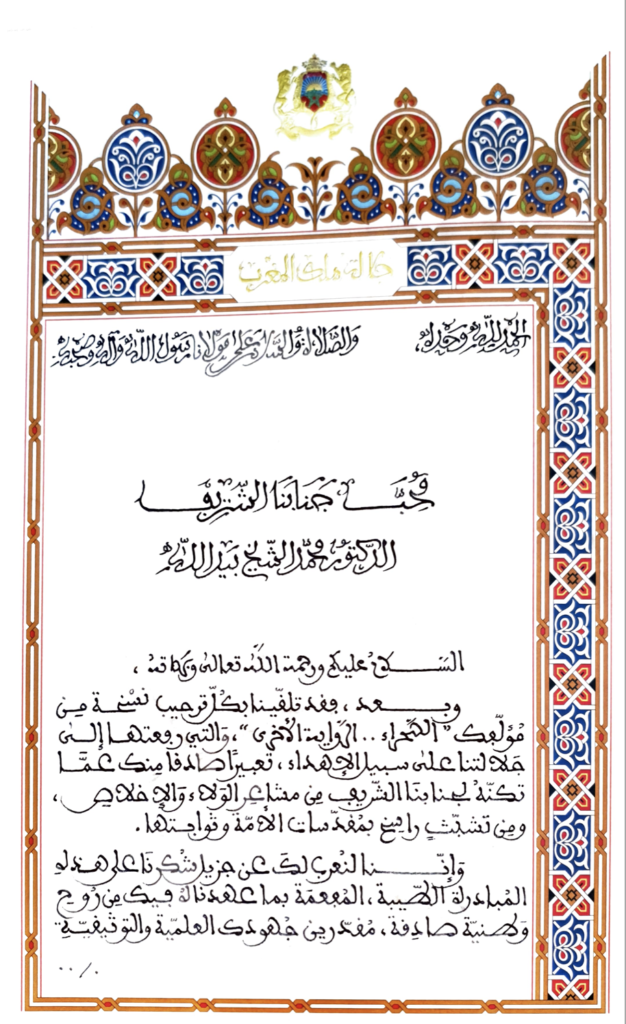 جلالة ملك المغرب
الحمد لله وحده، والصلاة والسلام على مولانا رسول الله وآله وصحبه
محب جنابنا الشريف
الدكتور محمد الشيخ بيد الله
السلام عليكم ورحمة الله تعالى وبركاته،
وبعد، فقد تلقينا بكل ترحيب نسخة من
مؤلفك "الصحراء.. الرواية الأخرى"، والتي رفعتها إلى
جلالتنا على سبيل الإهداء، تعبيرا صادقا منك عما
تكنه لجنابنا الشريف من مشاعر الولاء والإخلاص،
ومن تشبث راسخ بمقدسات الأمة وثوابتها.
وإننا لنعرب لك عن جزيل شكرنا على هذه
المبادرة الطيبة، المفعمة بما عهدناه فيك من روح
وطنية صادقة، مقدرين جهودك العلمية والتوثيقية